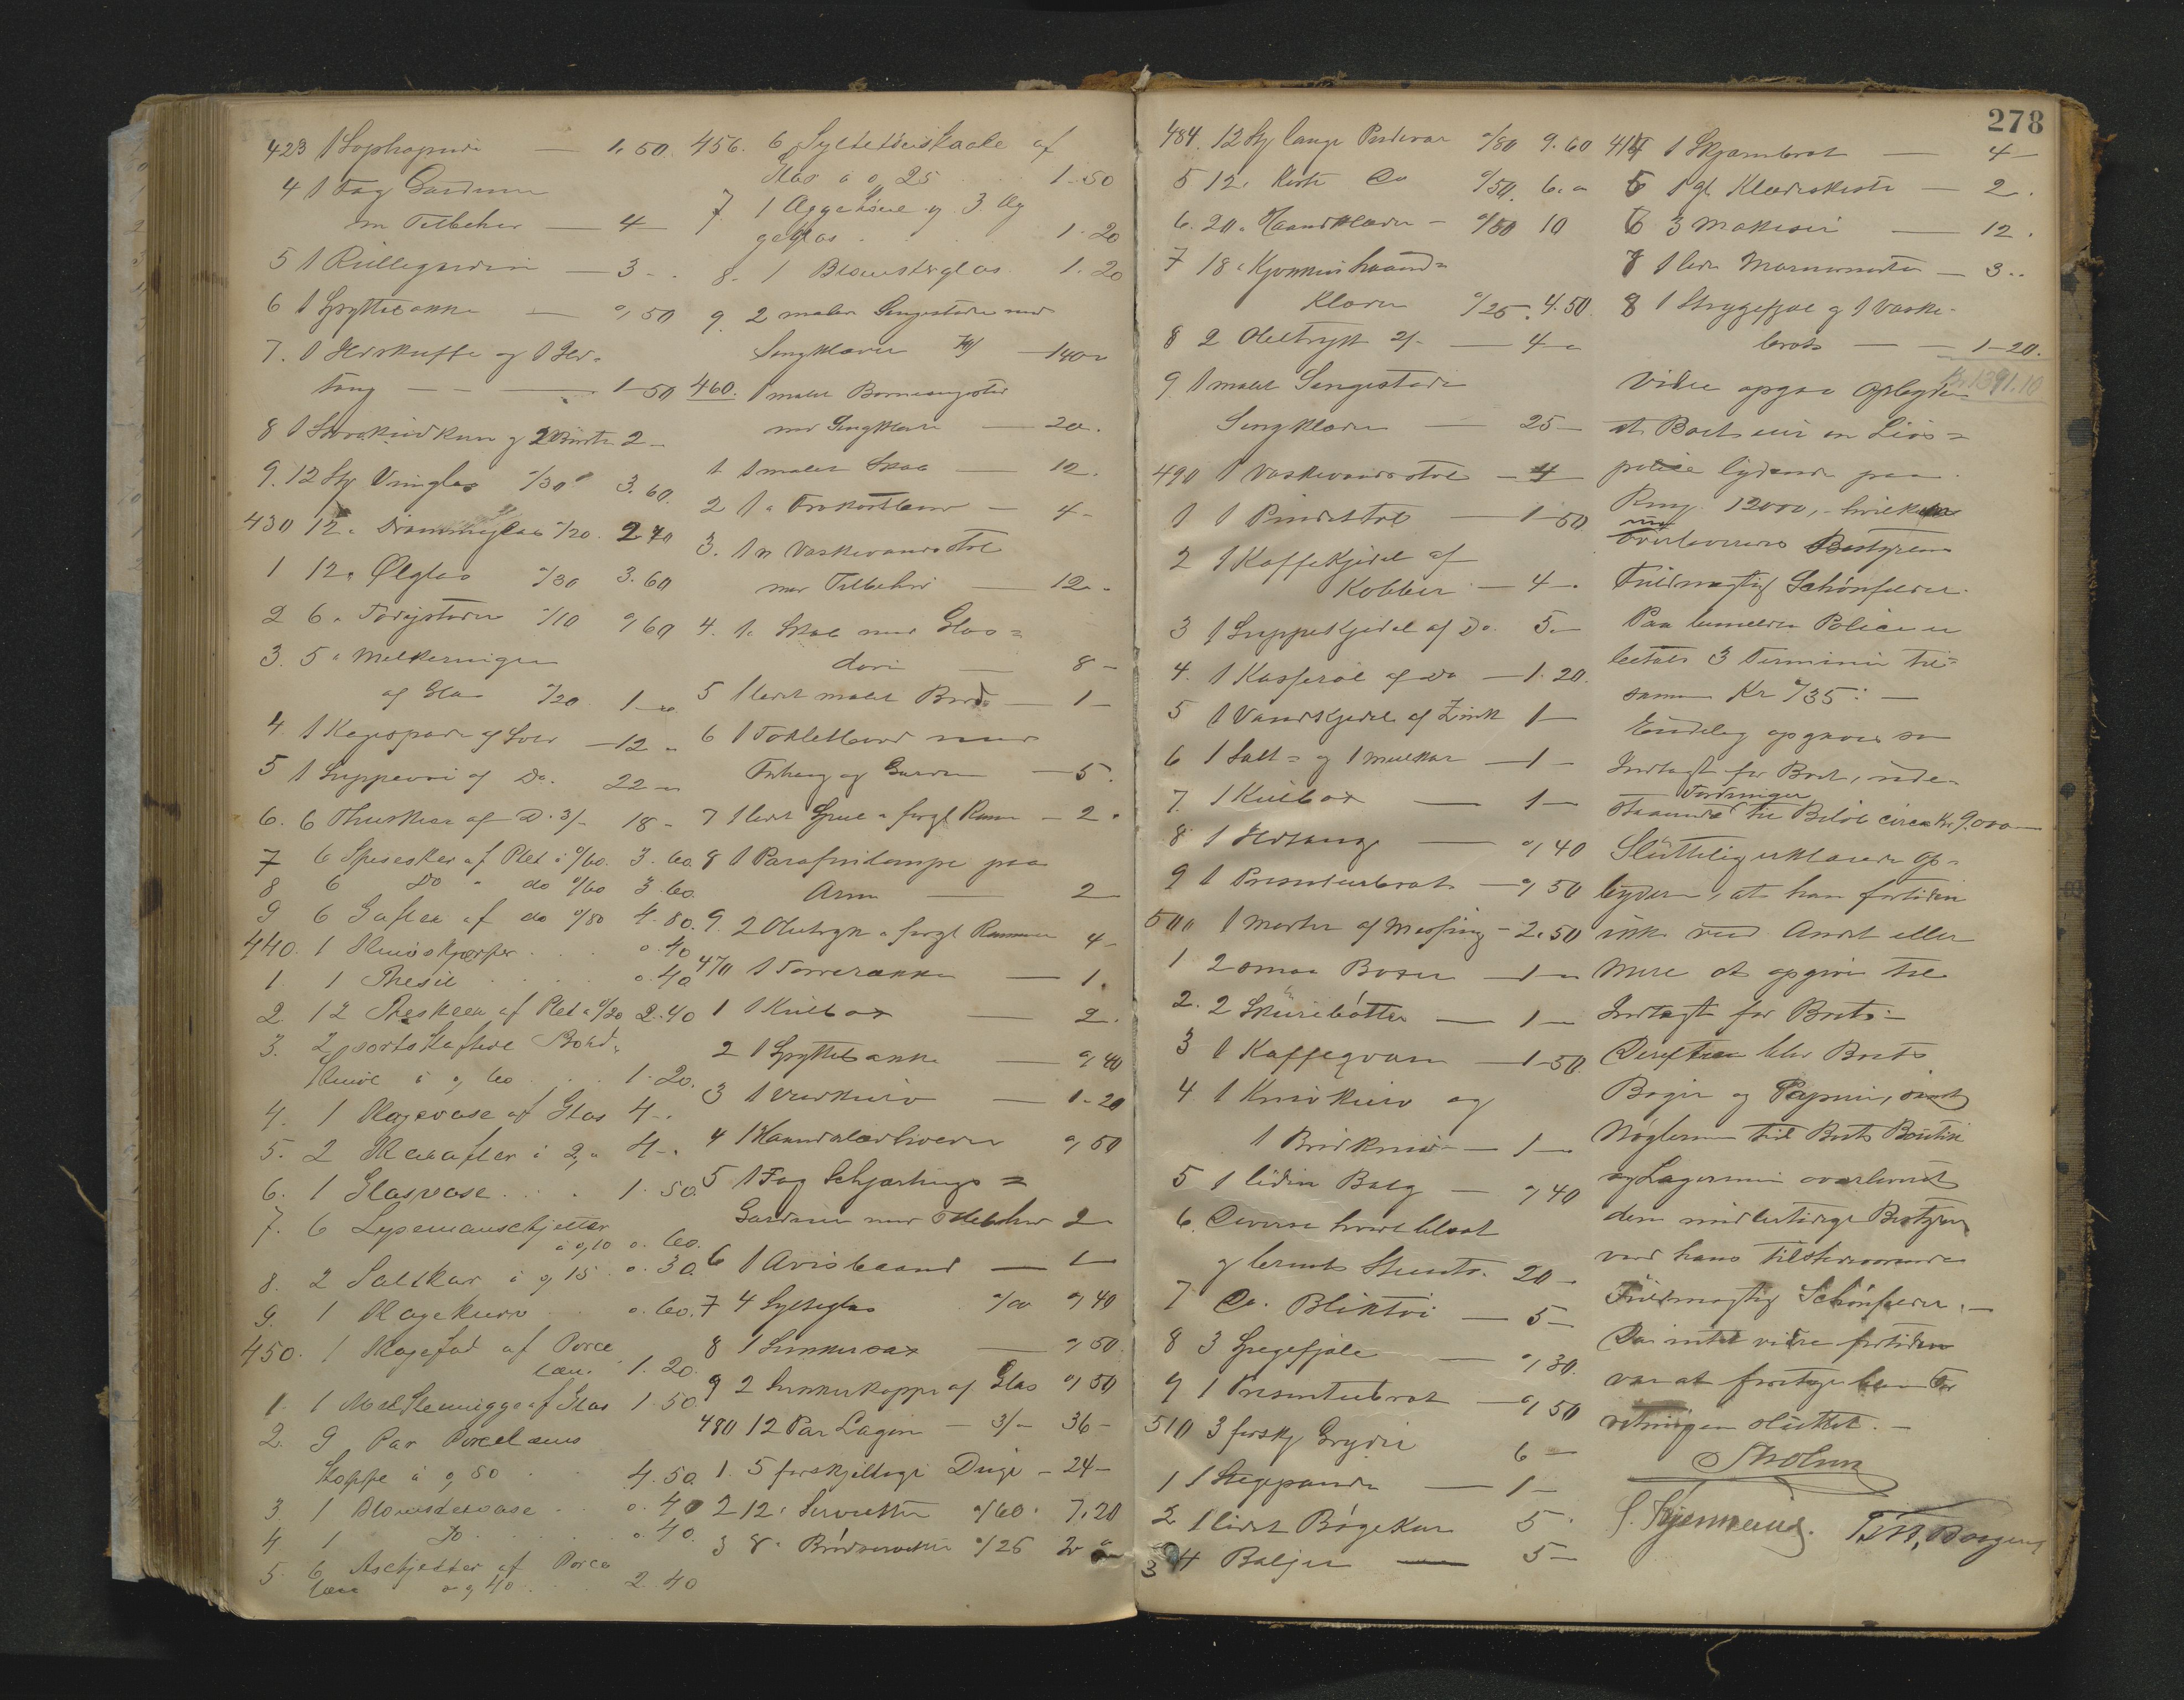 423 1 Sophapude — 1.50
4 1 Fag Gardiner
m Tilbehør — 4 —
5 1 Rullegardin — 3 - .
6 1 Spyttebakke — 0,50
7. 1 Ildskuffe og 1 Ild-
tang — — 1-50
8 1 Støvekost
9. 12 Stk Vinglas 0/30 3.60.
430 12 " Drammeglas 0/20. 2.40
1 12 " Ølglas 0/30 3.60
2 6 " 0/10 0,60
3. 5 " Melkeringer
af Glas 0/20 1 —
4 1 Kagespade af Sølv — 12 "
5 1 Suppeøse af Do. 22 —
6. 6 Theskeer af D. 3/- 18 -
7 6 Spiseskeer af Plet à 0/60. 3.60.
8 6 Do " do 0/60 3.60.
9 6 Gafler af do 0/80 4.80.
440. 1 . . . 0.40
1. 1 Thesil . . . 0.40
2. 12 Theskeer af Plet à 0/20 2.40
3. 2 sortskaftede Bord-
Knive à 0,60 . . 1.20.
4. 1 Kagevase af Glas 4-.
5. 2 Karafler à 2," 4-.
6. 1 Glasvase . . . 1.50.
7. 6 Lysemanschjetter
à 0,10 0.60.
8. 2 Saltkar à 0,15 . 0.30.
9. 1 Kagekurv . . 0.60.
450. 1 Kagefad af Porce
læn. 1.20.
1. 1 Melkemugge af Glas 1.50.
2. 9 Par Porcelæns
Koppe à 0,50 . . 4.50.
3. 1 Blomstervase . . 0.40
4 1 Do . . . 0.40.
5. 6 Aschjetter af Porce
læn à 0,40 . . 2.40
456. 6 Syltetøiskaale af
Glas à 0,25 . . 1-50
7. 1 Æggekoge og 3 Æg
geglas . . . 1.20
8. 1 Blomsterglas . 1.20
9. 2 malte Sengesteder med
Sengklæder — 140 "
460. 1 malt Barneseng
med Sengklæder — 20 .
1. 1 malet Skab — 12.
2 1 " Frokostbord — 4 -
3. 1 " Vaskevandsstol
med Tilbehør — 12 - .
4. 1 " Skab med Glas=
døre — 8 -
5 1 lidet malet Bord — 1 -
6 1 Toiletbord med
Forhæng og Gardin — 5 .
7 1 lidet Speil i forgl Ramme — 2 "
8 1 Parafinlampe paa
Arm — 2
9. 2 Oljetryk i forgl Rammer 4 -
470 1 — 1.
1 1 Kulbox — 2.
2 1 Spyttebakke — 0,40
3 1 Vedkurv — 1-20
4 1 Haandklædholder 0,50
5 1 Fag Schjærtings =
Gardiner med Tilbehør 2 -
6 1 Avisbaand — 1 —
7 4 Sylteglas 0/10 0,40
8 1 Sukkersax — 0,50
9 2 Sukkerkopper af Glas 0,50
480 12 Par Lagen — 3/- 36 -
1. 5 forskjellige Duge — 24 —
2 12 " Servietter 0/60 . 7.20
3 8 " Brødservietter 0/25 2 "
278
484. 12 Stk lange Pudevar 0/80 9.60
5 12 " korte Do 0/50. 6. "
6. 20 " Haandklæder — 0/50 10
7 18 " Kjøkkenhaand=
klæder 0/25. 4.50.
8 2 Oljetryk 2/. — 4 "
9. 1 malet Sengested
Sengklæder — 25 —
490 1 Vaskevandsstol — 4
1 1 Pindestol — 1-50
2 1 Kaffekjedel af
Kobber — 4 - .
3 1 Suppekjedel af Do. 5. —
4. 1 Kasserol af Do — 1.20.
5 1 Vandkjedel af Zink 1 —
6 1 Salt= og 1 Melkar — 1 —
7. 1 Kulbox — 1 —
8 1 Ildtang — 0,40
9 1 Presenterbret — 0,50
500 1 Morter af Messing — 2.50
1 2 smaa Boxer — 1 —
2. 2 Skurebøtter — 1 —
3 1 Kaffeqværn — 1-50
4 1 Knivkurv og
1 Brødkniv — 1 —
5 1 liden Balg — 0,40
6. Diverse hvidt blaat
og brunt Stentøi. 20 —
7 Do. Bliktøi — 5 —
8 3 Spegefjøle — 0,30.
9 1 Presenterbret — 0,50
510 3 forskj Gryder 6 —
1 1 Stegepande — 1 —
2 1 lidet Bøgekar 5 .
3 4 Baljer — 5 —
414 1 Skjærmbret — 4 —
5 1 gl Klædeskiste — 2 .
6 3 — 12 .
7 1 liden — 3 ..
8 1 Strygefjæl og 1 Vaske-
bret — — 1-20.
Kr 1391.10
Videre opgav Opbyderen
at Boet eier en Livs=
police lydende paa
Rmg. 12000,- hvilken
nu
overleveres Bestyrerens
Fuldmægtig Schönfelder.
Paa bemeldte Police er
betalt 3 Terminer til=
sammen Kr 735: —
Endelig opgaves som
Indtægt for Boet, ude-
Fordringer
staaende til Beløb circa Kr 9.000 —
Sluttelig erklærede Op=
byderen, at han fortiden
ikke ved Andet eller
Mere at opgive til
Indtægt for Boet. —
Derefter blev Boets
Bøger og Papirer, samt
Nøglerne til Boets Boutik
og Lagerrum overleveret
den midlertidige Bestyrer
ved hans tilstedeværende
Fuldmægtig Schönfelder. —
Da intet videre fortiden
var at foretage blev For
retningen sluttet. —